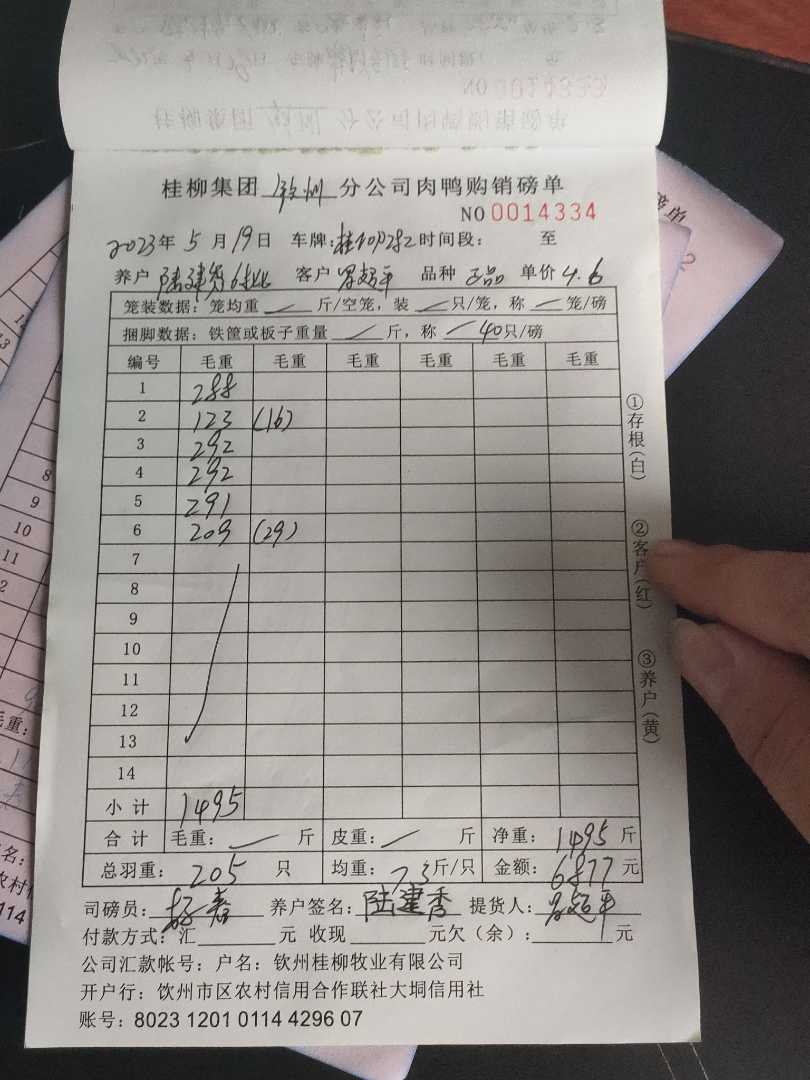 桂柳集团 钦州 分公司肉鸭购销磅单
NO 0014334
2023年 5 月 19日 车牌: 时间段: 至
养户 陆建秀 客户 品种 正品 单价 4.6
笼装数据: 笼均重 斤/空笼, 装 只/笼, 称 笼/磅
捆脚数据: 铁筐或板子重量 斤, 称 40只/磅
编号 毛重 毛重 毛重 毛重 毛重 毛重
1 288
2 123 (16)
3 292
4 292
5 291
6 209 (29)
7
8
9
10
11
12
13
14
小计 1495
合计 毛重: 斤 皮重: 斤 净重: 1495 斤
总羽重: 205 只 均重: 7.3斤/只 金额: 6877 元
司磅员: 养户签名: 陆建秀 提货人:
付款方式: 汇 元 收现 元欠(余): 元
公司汇款帐号: 户名: 钦州桂柳牧业有限公司
开户行: 钦州市区农村信用合作联社大垌信用社
账号: 8023 1201 0114 4296 07
①存根(白)
②客户(红)
③养户(黄)